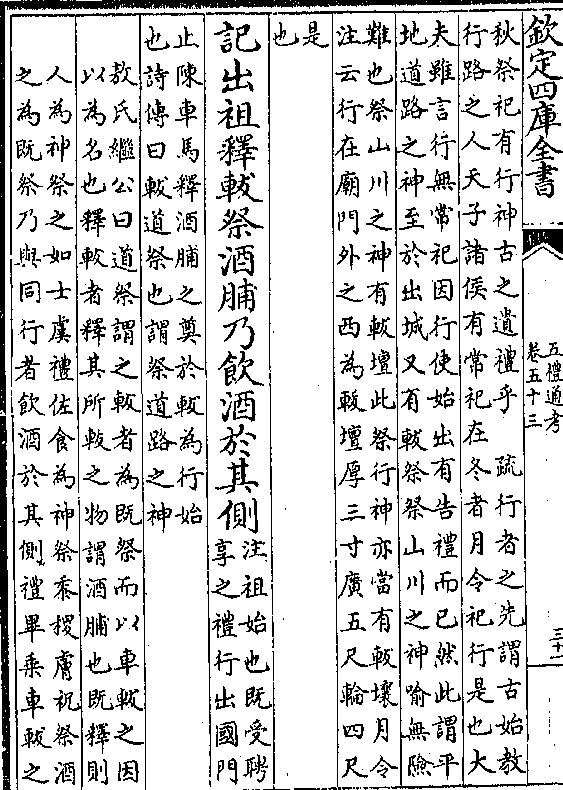 欽定四庫全書
五禮通考
卷五十三
秋祭祀有行神古之遺禮乎 疏行者之先謂古始教
行路之人天子諸侯有常祀在冬者月令祀行是也大
夫雖言行無常祀因行使始出有告禮而已然此謂平
地道路之神至於出城又有軷祭祭山川之神喻無險
難也祭山川之神有軷壇此祭行神亦當有軷壤月令
注云行在廟門外之西為軷壇厚三寸廣五尺輪四尺
是
也
記出祖釋軷祭酒脯乃飲酒於其側
注祖始也既受聘
享之禮行出國門
止陳車馬釋酒脯之奠於軷為行始
也詩傳曰軷道祭也謂祭道路之神
敖氏繼公曰道祭謂之軷者為既祭而以車軷之因
以為名也釋軷者釋其所軷之物謂酒脯也既釋則
人為神祭之如士虞禮佐食為神祭黍稷膚祝祭酒
之為既祭乃與同行者飲酒於其側禮畢乘車軷之